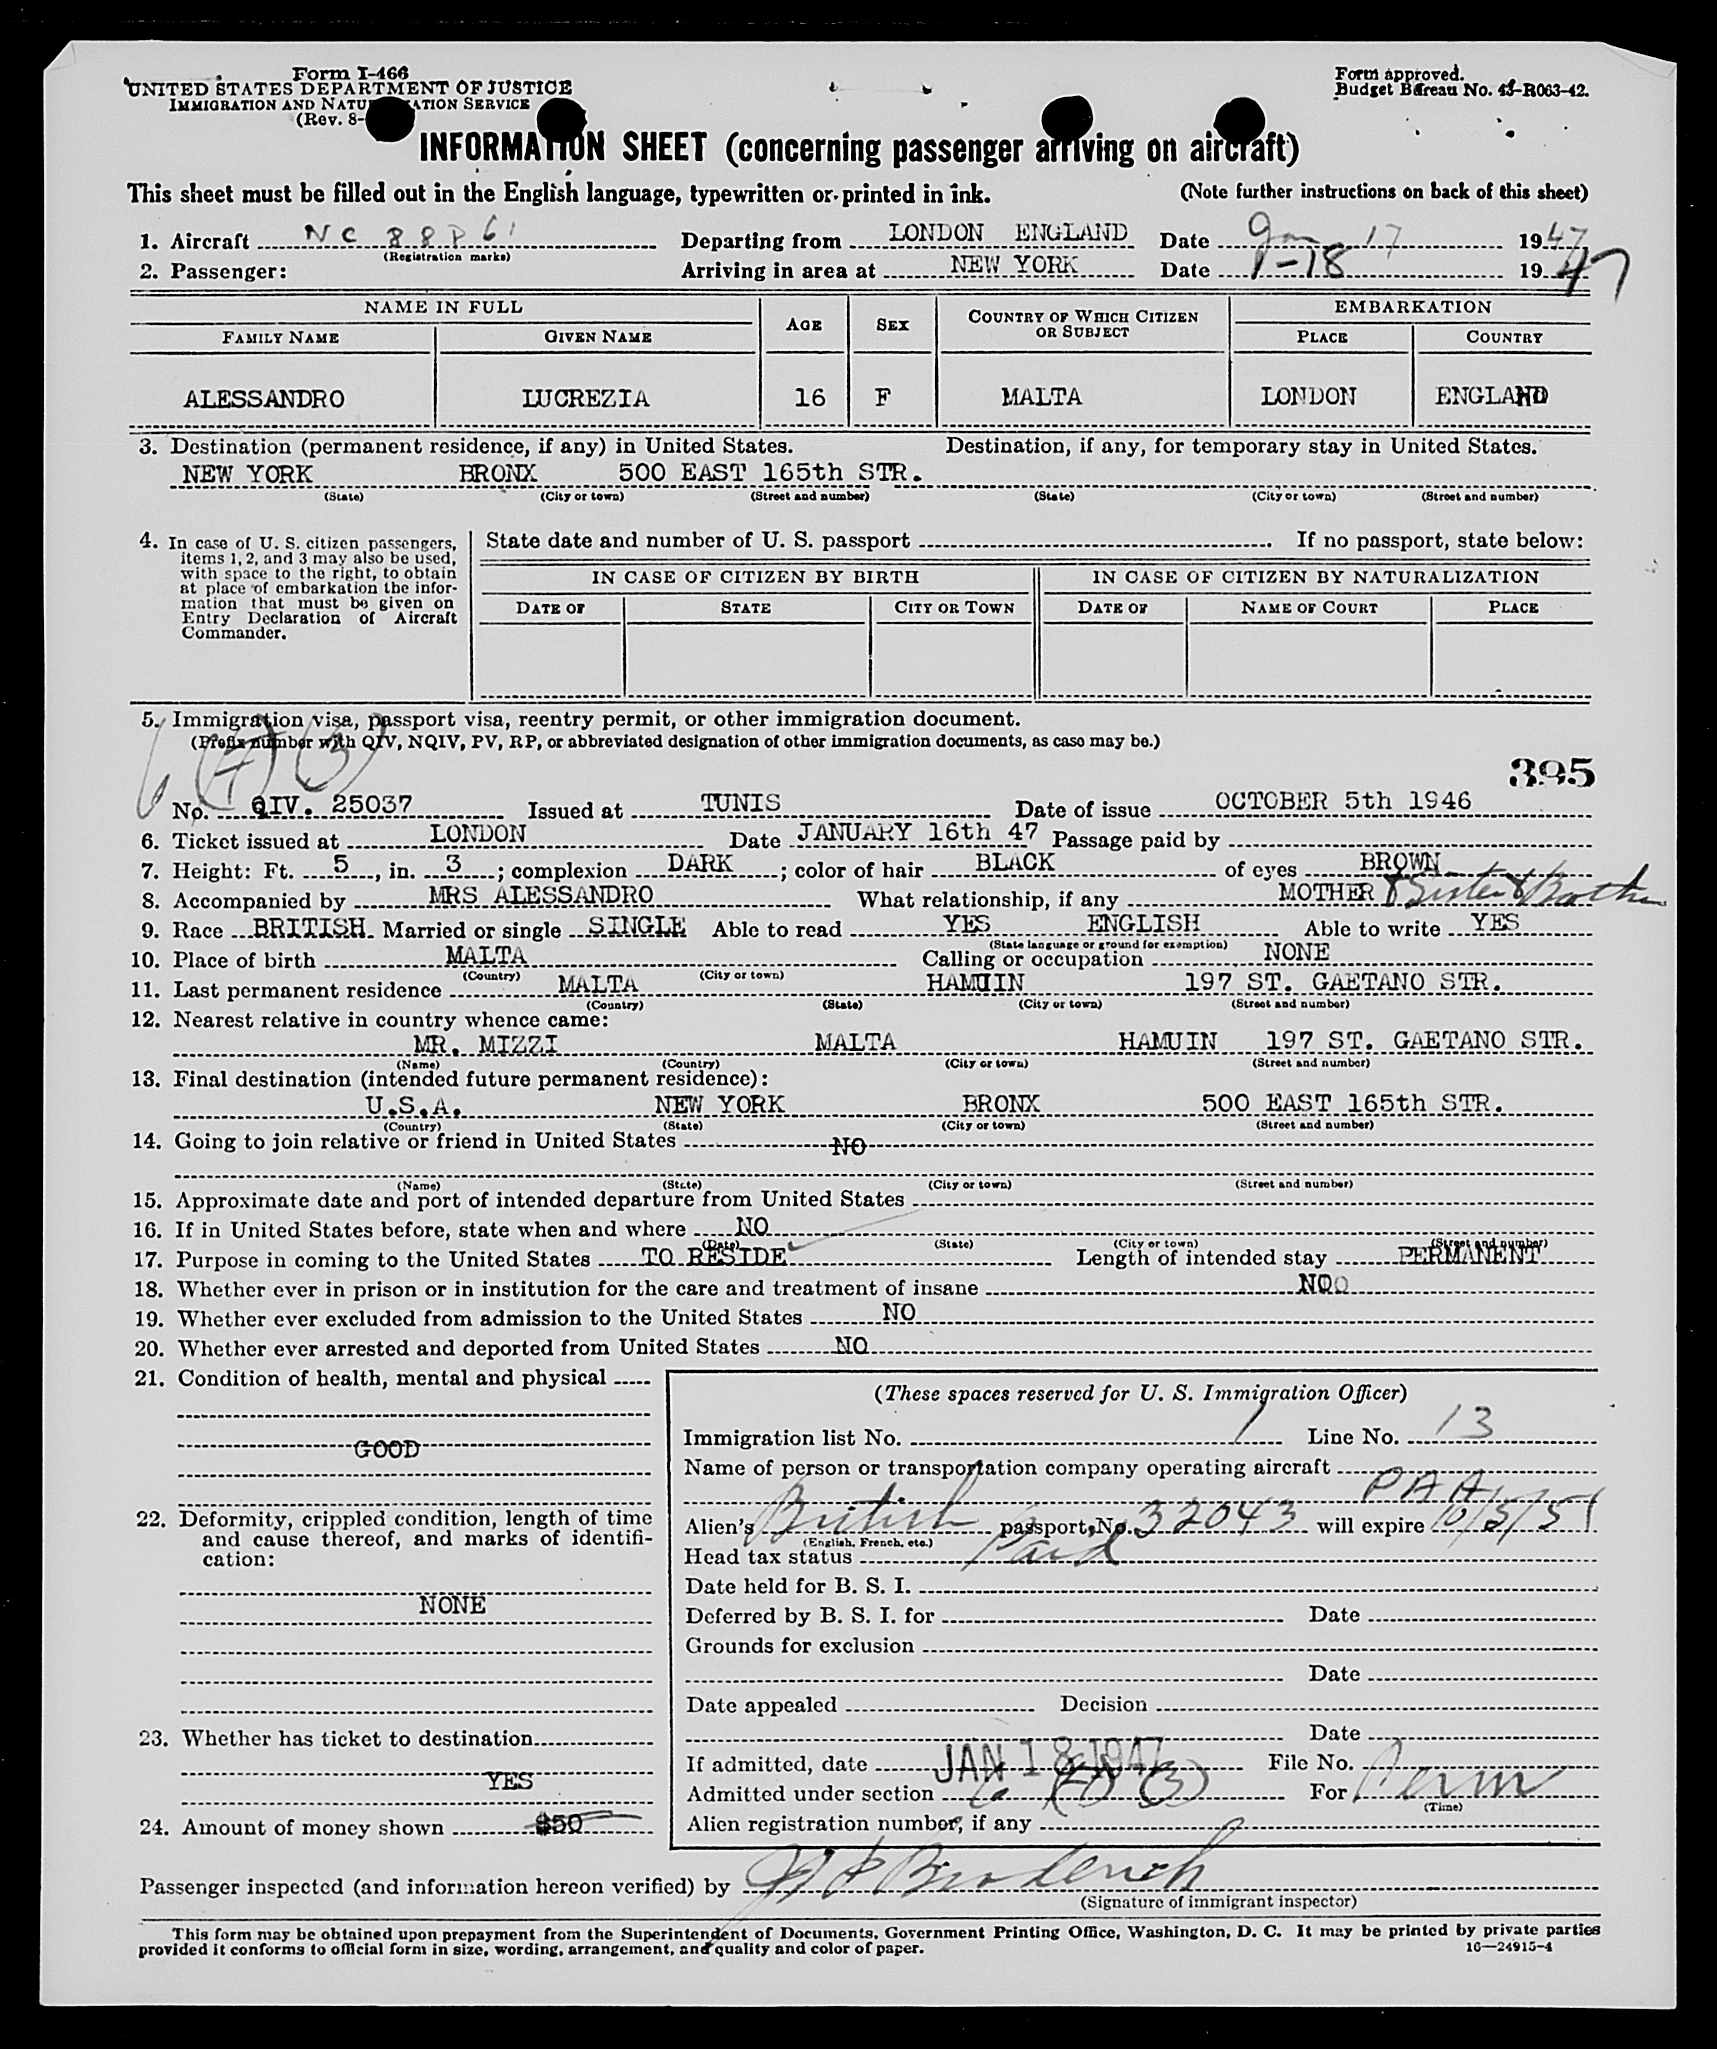 Form I-466
UNITED STATES DEPARTMENT OF JUSTICE
IMMIGRATION AND NATURALIZATION SERVICE
(Rev. 8-
Form approved.
Budget Bureau No. 43-R063-42.
INFORMATION SHEET (concerning passenger arriving on aircraft)
This sheet must be filled out in the English language, typewritten or printed in ink. (Note further instructions on back of this sheet)
1. Aircraft NC 88861 Departing from LONDON ENGLAND Date Jan 17 1947
(Registration marks)
2. Passenger: Arriving in area at NEW YORK Date 1-18 1947
NAME IN FULL AGE SEX COUNTRY OF WHICH CITIZEN OR SUBJECT EMBARKATION
FAMILY NAME GIVEN NAME PLACE COUNTRY
ALESSANDRO LUCREZIA 16 F MALTA LONDON ENGLAND
3. Destination (permanent residence, if any) in United States. Destination, if any, for temporary stay in United States.
NEW YORK BRONX 500 EAST 165th STR.
(State) (City or town) (Street and number) (State) (City or town) (Street and number)
4. In case of U. S. citizen passengers,
items 1, 2, and 3 may also be used,
with space to the right, to obtain
at place of embarkation the infor-
mation that must be given on
Entry Declaration of Aircraft
Commander.
State date and number of U. S. passport . If no passport, state below:
IN CASE OF CITIZEN BY BIRTH IN CASE OF CITIZEN BY NATURALIZATION
DATE OF STATE CITY OR TOWN DATE OF NAME OF COURT PLACE
5. Immigration visa, passport visa, reentry permit, or other immigration document.
(Prefix number with QIV, NQIV, PV, RP, or abbreviated designation of other immigration documents, as case may be.)
6 (4) (3)
395
No. QIV. 25037 Issued at TUNIS Date of issue OCTOBER 5th 1946
6. Ticket issued at LONDON Date JANUARY 16th 47 Passage paid by
7. Height: Ft. 5, in. 3; complexion DARK; color of hair BLACK of eyes BROWN
8. Accompanied by MRS ALESSANDRO What relationship, if any MOTHER & Sister & Brother
9. Race BRITISH. Married or single SINGLE Able to read YES ENGLISH Able to write YES
(State language or ground for exemption)
10. Place of birth MALTA Calling or occupation NONE
(Country) (City or town)
11. Last permanent residence MALTA HAMUIN 197 ST. GAETANO STR.
(Country) (State) (City or town) (Street and number)
12. Nearest relative in country whence came:
MR. MIZZI MALTA HAMUIN 197 ST. GAETANO STR.
(Name) (Country) (City or town) (Street and number)
13. Final destination (intended future permanent residence):
U.S.A. NEW YORK BRONX 500 EAST 165th STR.
(Country) (State) (City or town) (Street and number)
14. Going to join relative or friend in United States NO
(Name) (State) (City or town) (Street and number)
15. Approximate date and port of intended departure from United States
16. If in United States before, state when and where NO
(Date) (State) (City or town) (Street and number)
17. Purpose in coming to the United States TO RESIDE Length of intended stay PERMANENT
18. Whether ever in prison or in institution for the care and treatment of insane NOO
19. Whether ever excluded from admission to the United States NO
20. Whether ever arrested and deported from United States NO
21. Condition of health, mental and physical
GOOD
22. Deformity, crippled condition, length of time
and cause thereof, and marks of identifi-
cation:
NONE
23. Whether has ticket to destination
YES
24. Amount of money shown $50
(These spaces reserved for U. S. Immigration Officer)
Immigration list No. 1 Line No. 13
Name of person or transportation company operating aircraft
PAA
Alien's British passport, No. 32043 will expire 10/5/51
(English, French, etc.)
Head tax status Paid
Date held for B. S. I.
Deferred by B. S. I. for Date
Grounds for exclusion
Date
Date appealed Decision
Date
If admitted, date JAN 18 1947 File No.
Admitted under section 6 (4) (3) For Perm
(Time)
Alien registration number, if any
Passenger inspected (and information hereon verified) by
(Signature of immigrant inspector)
This form may be obtained upon prepayment from the Superintendent of Documents, Government Printing Office, Washington, D. C. It may be printed by private parties
provided it conforms to official form in size, wording, arrangement, and quality and color of paper. 16—24915-4